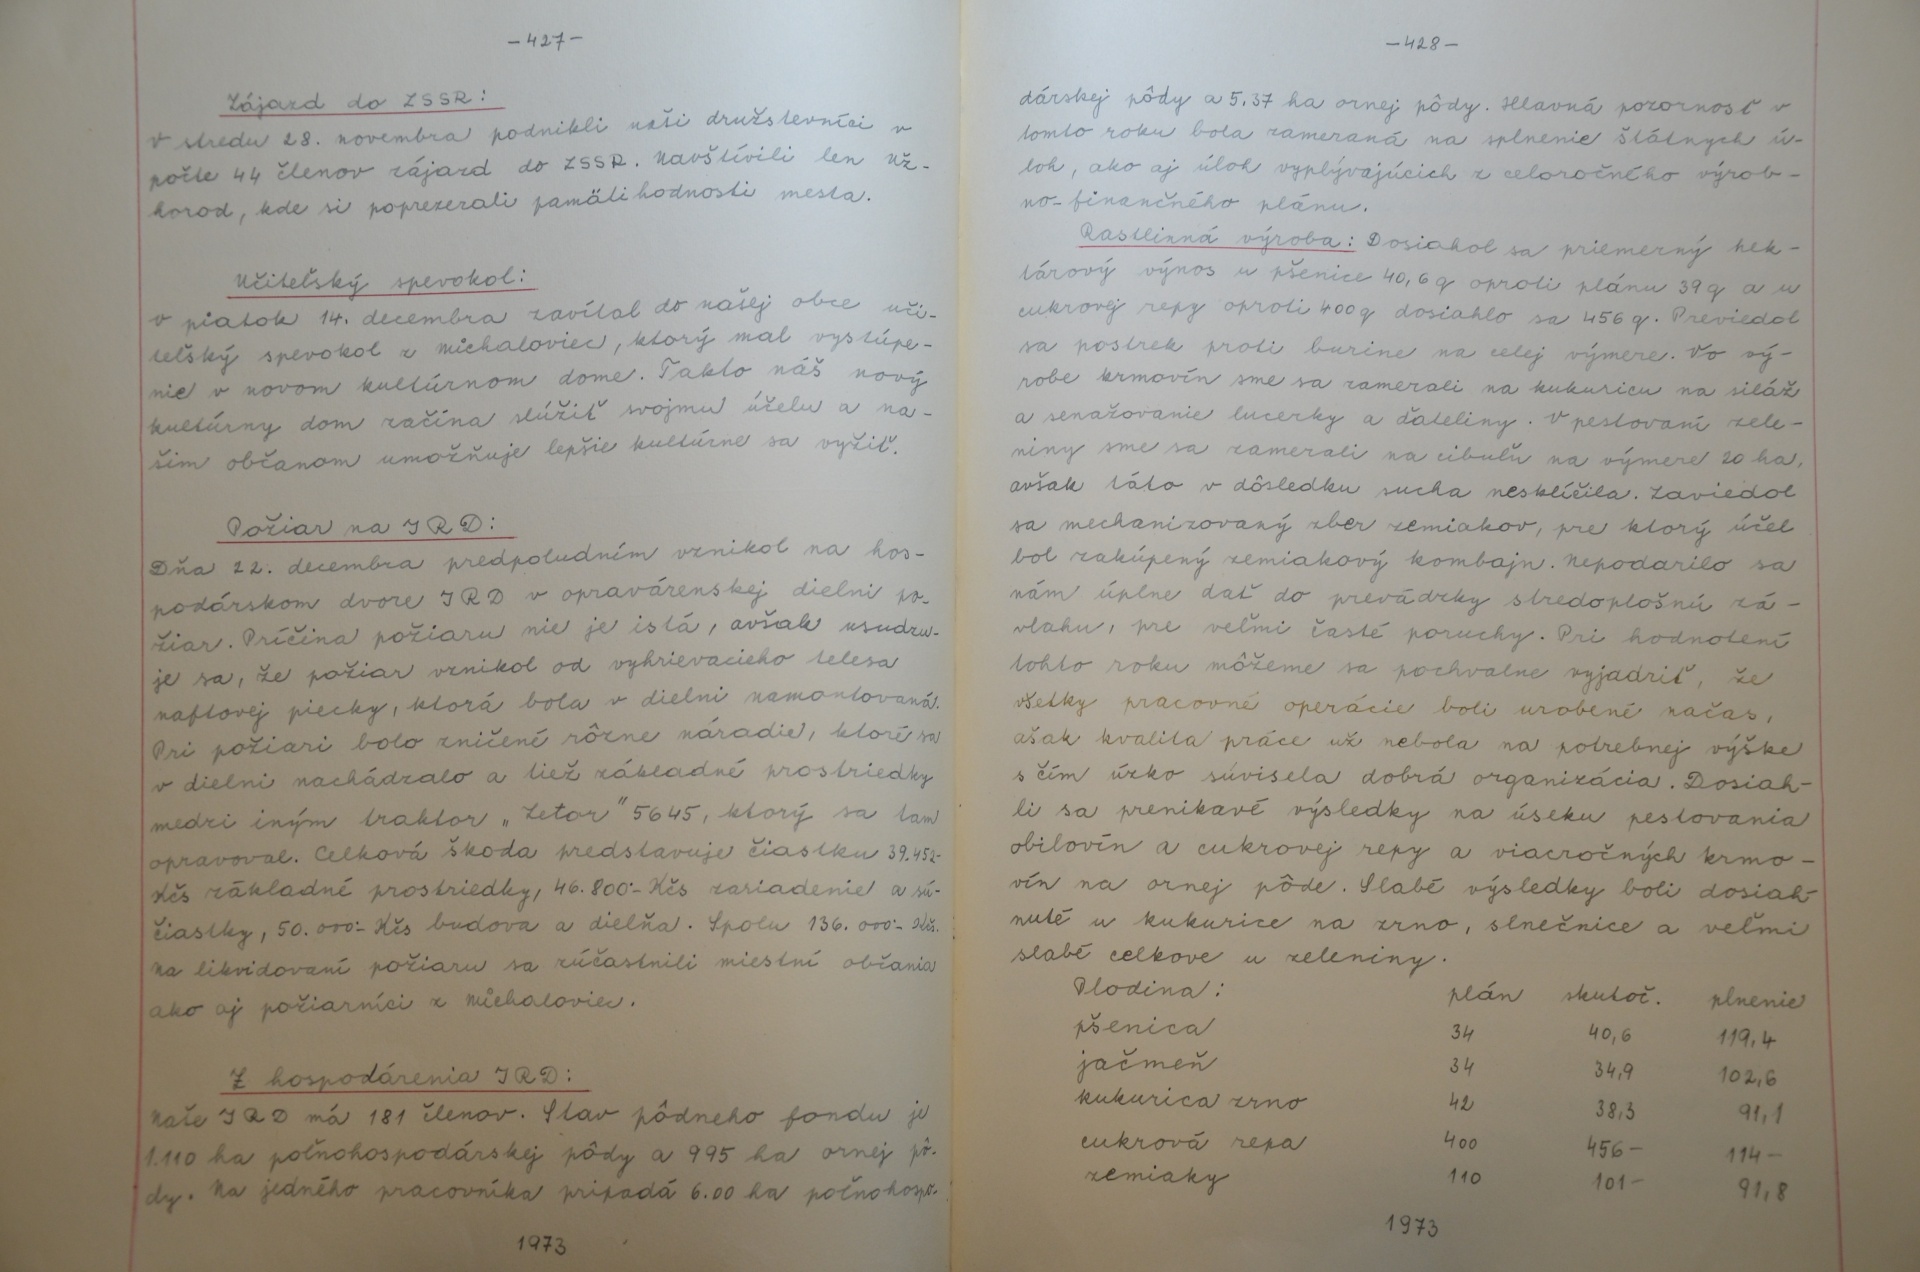 -427-
Zájazd do ZSSR:
V stredu 28. novembra podnikli naši družstevníci v
počte 44 členov zájazd do ZSSR. Navštívili len Už-
horod, kde si poprezerali pamätihodnosti mesta.
Učiteľský spevokol:
V piatok 14. decembra zavítal do našej obce uči-
teľský spevokol z Michaloviec, ktorý mal vystúpe-
nie v novom kultúrnom dome. Takto náš nový
kultúrny dom začína slúžiť svojmu účelu a na-
šim občanom umožňuje lepšie kultúrne sa vyžiť.
Požiar na JRD:
Dňa 22. decembra predpoludním vznikol na hos-
podárskom dvore JRD v opravárenskej dielni po-
žiar. Príčina požiaru nie je istá, avšak usudzu-
je sa, že požiar vznikol od vyhrievacieho telesa
naftovej piecky, ktorá bola v dielni namontovaná.
Pri požiari bolo zničené rôzne náradie, ktoré sa
v dielni nachádzalo a tiež základné prostriedky
medzi iným traktor „Zetor" 5645, ktorý sa tam
opravoval. Celková škoda predstavuje čiastku 39.452-
Kčs základné prostriedky, 46.800·- Kčs zariadenie a sú-
čiastky, 50.000·- Kčs budova a dielňa. Spolu 136.000·- Kčs.
Na likvidovaní požiaru sa zúčastnili miestni občania
ako aj požiarníci z Michaloviec.
Z hospodárenia JRD:
Naše JRD má 181 členov. Stav pôdneho fondu je
1.110 ha poľnohospodárskej pôdy a 995 ha ornej pô-
dy. Na jedného pracovníka pripadá 6.00 ha poľnohospo-
1973
-428-
dárskej pôdy a 5.37 ha ornej pôdy. Hlavná pozornosť v
tomto roku bola zameraná na splnenie štátnych ú-
loh, ako aj úloh vyplývajúcich z celoročného výrob-
no-finančného plánu.
Rastlinná výroba: Dosiahol sa priemerný hek-
tárový výnos u pšenice 40,6 q oproti plánu 39 q a u
cukrovej repy oproti 400 q dosiahlo sa 456 q. Previedol
sa postrek proti burine na celej výmere. Vo vý-
robe krmovín sme sa zamerali na kukuricu na siláž
a senažovanie lucerky a ďateliny. V pestovaní zele-
niny sme sa zamerali na cibuľu na výmere 20 ha,
avšak táto v dôsledku sucha nesklíčila. Zaviedol
sa mechanizovaný zber zemiakov, pre ktorý účel
bol zakúpený zemiakový kombajn. Nepodarilo sa
nám úplne dať do prevádzky stredoplošnú zá-
vlahu, pre veľmi časté poruchy. Pri hodnotení
tohto roku môžeme sa pochvalne vyjadriť, že
všetky pracovné operácie boli urobené načas,
ašak kvalita práce už nebola na potrebnej výške
s čím úzko súvisela dobrá organizácia. Dosiah-
li sa prenikavé výsledky na úseku pestovania
obilovín a cukrovej repy a viacročných krmo-
vín na ornej pôde. Slabé výsledky boli dosiah-
nuté u kukurice na zrno, slnečnice a veľmi
slabé celkove u zeleniny.
Plodina: plán skutoč. plnenie
pšenica 34 40,6 119,4
jačmeň 34 34,9 102,6
kukurica zrno 42 38,3 91,1
cukrová repa 400 456- 114-
zemiaky 110 101- 91,8
1973